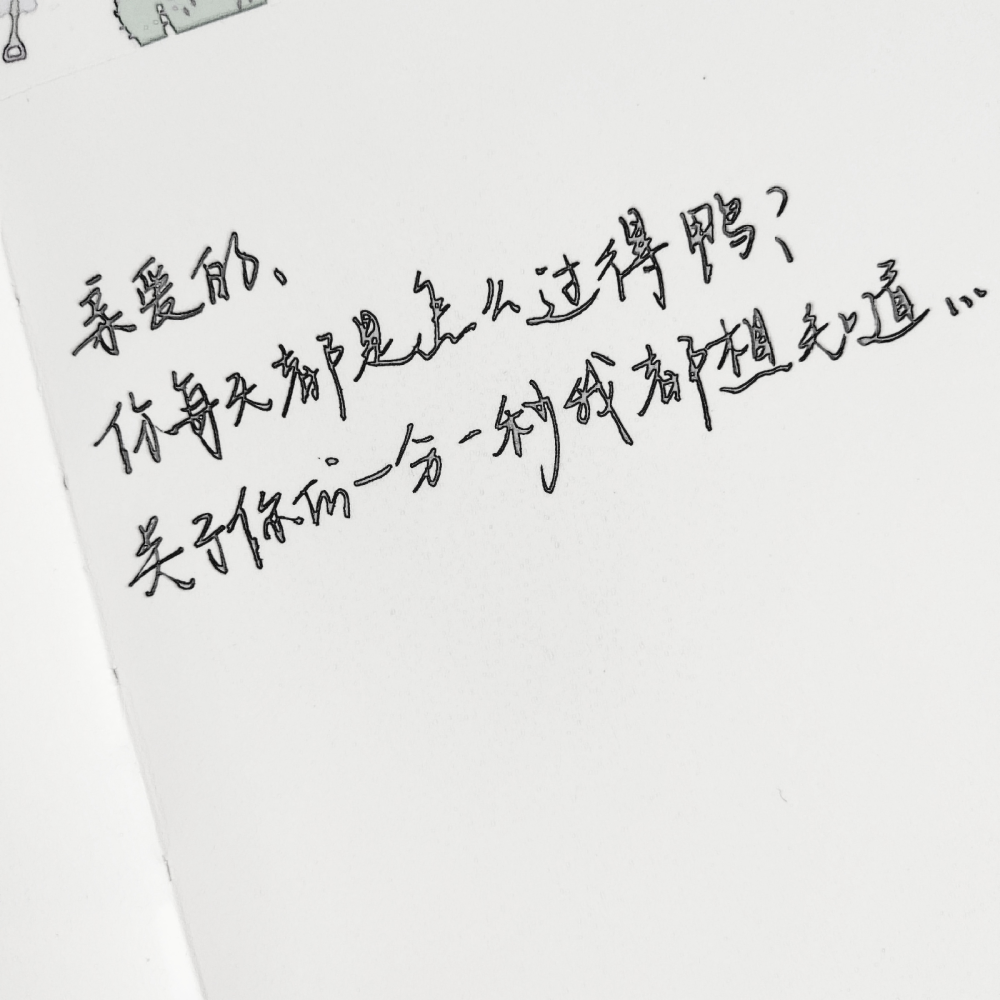 亲爱的、
你每天都是怎么过得鸭？
关于你的一分一秒我都想知道...